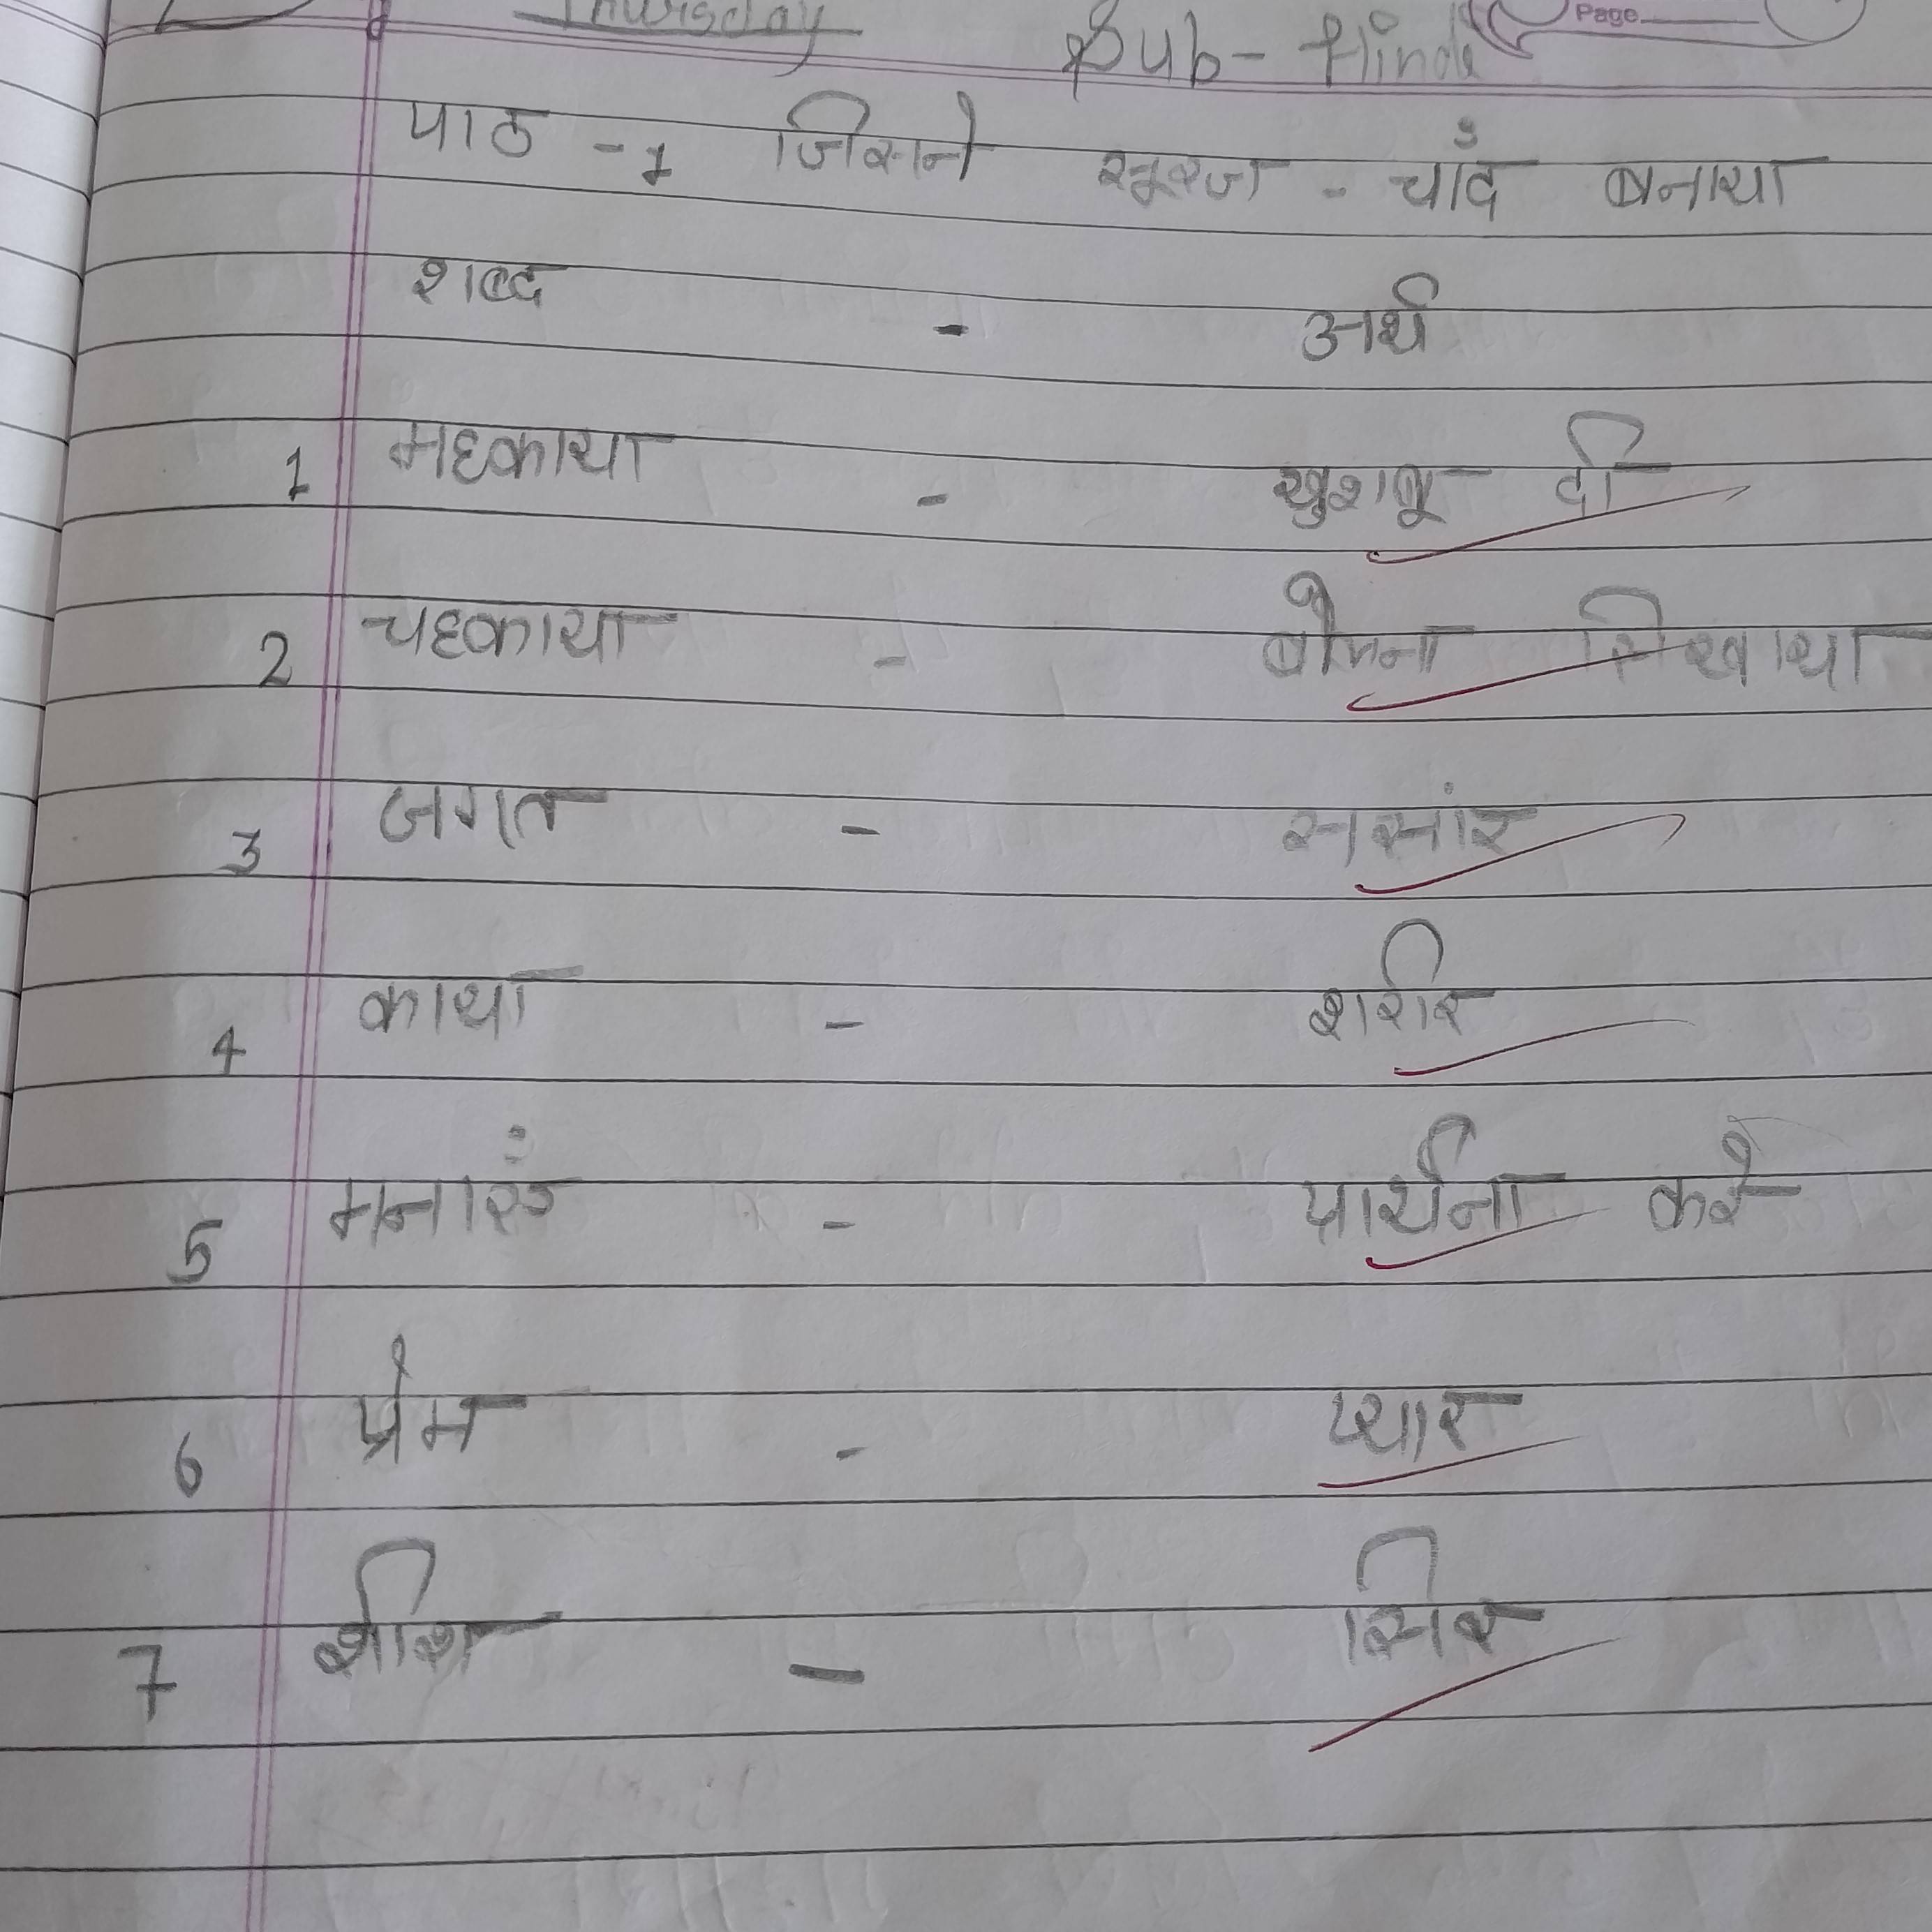 Thursday Sub- Hindi Page
पाठ - 1 जिसने सूरज - चाँद बनाया
शब्द - अर्थ
1 महकाया - खुशबू दी
2 चहकाया - बोलना सिखाया
3 जगत - ससांर
4 काया - शरीर
5 मनाएं - प्रार्थना करे
6 प्रेम - प्यार
7 शीश - सिर